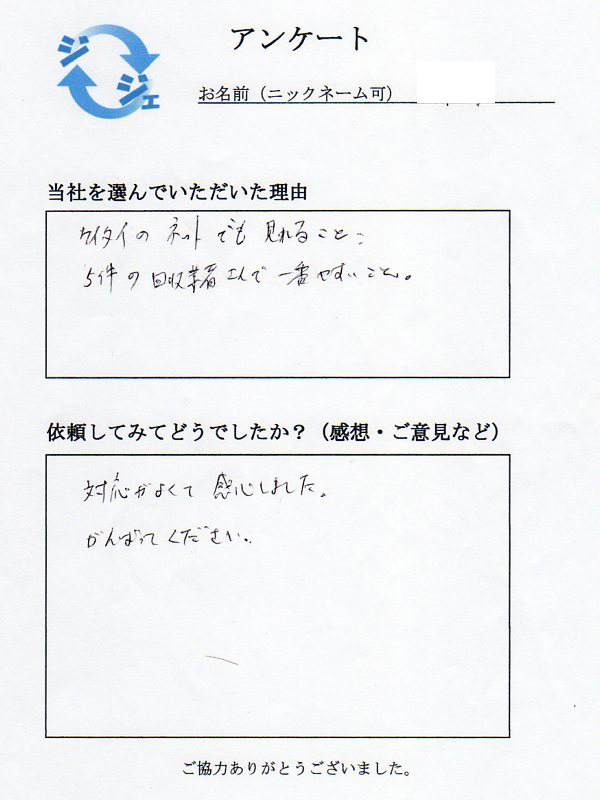 ジジェ
アンケート
お名前（ニックネーム可）
当社を選んでいただいた理由
ケイタイの ネットでも 見れること：
5件の回収業者さんで 一番やすいこと。
依頼してみてどうでしたか？（感想・ご意見など）
対応がよくて 感心しました。
がんばってください。
ご協力ありがとうございました。